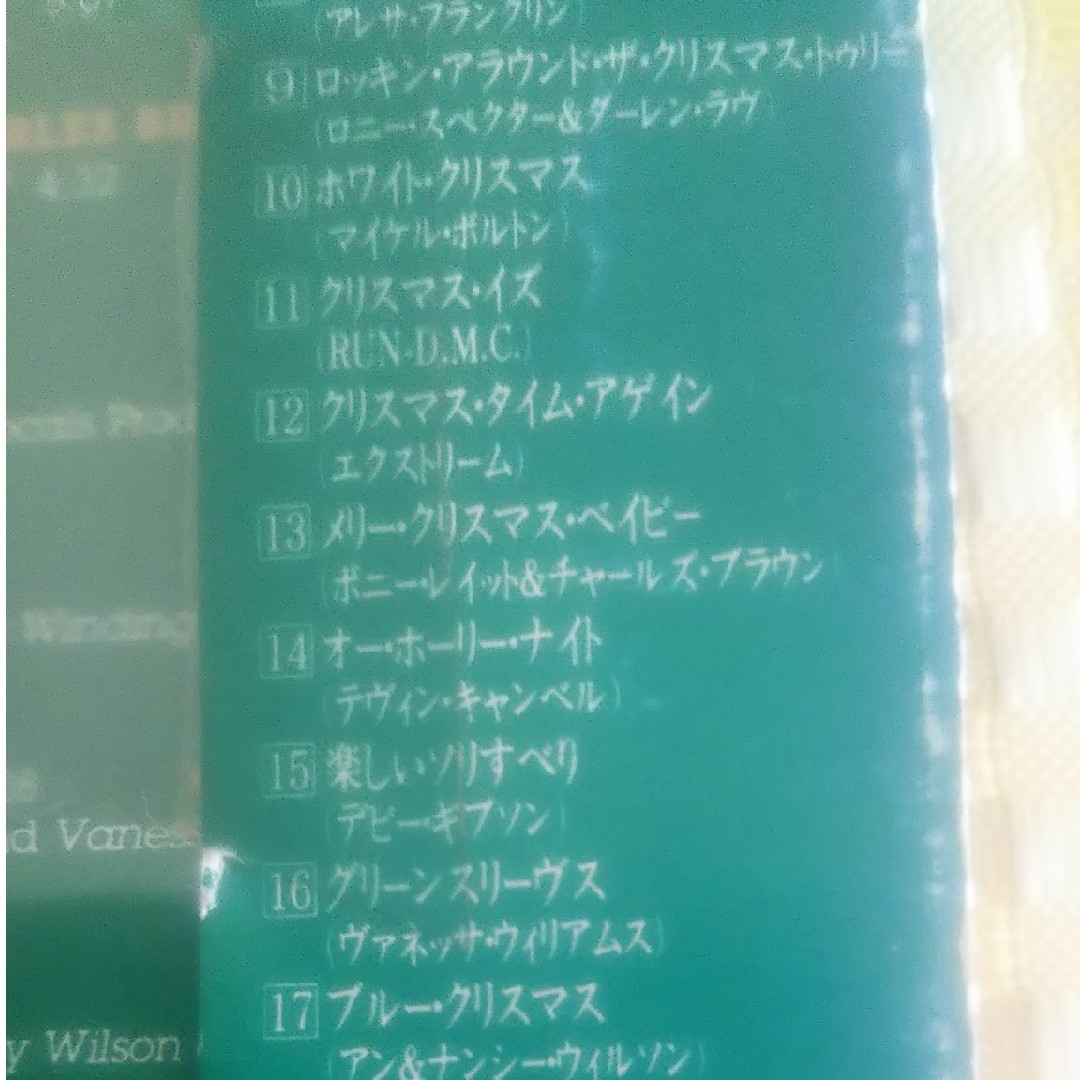 (アレサ・フランクリン)
9 ロッキン・アラウンド・ザ・クリスマス・トゥリー
(ロニー・スペクター&ダーレン・ラヴ)
10 ホワイト・クリスマス
(マイケル・ボルトン)
11 クリスマス・イズ
(RUN-D.M.C.)
12 クリスマス・タイム・アゲイン
(エクストリーム)
13 メリー・クリスマス・ベイビー
(ボニー・レイット&チャールズ・ブラウン)
14 オー・ホーリー・ナイト
(テヴィン・キャンベル)
15 楽しいソリすべり
(デビー・ギブソン)
16 グリーンスリーヴス
(ヴァネッサ・ウィリアムス)
17 ブルー・クリスマス
(アン&ナンシー・ウィルソン)
4:32
Prod
Winding
d Vanes
y Wilson